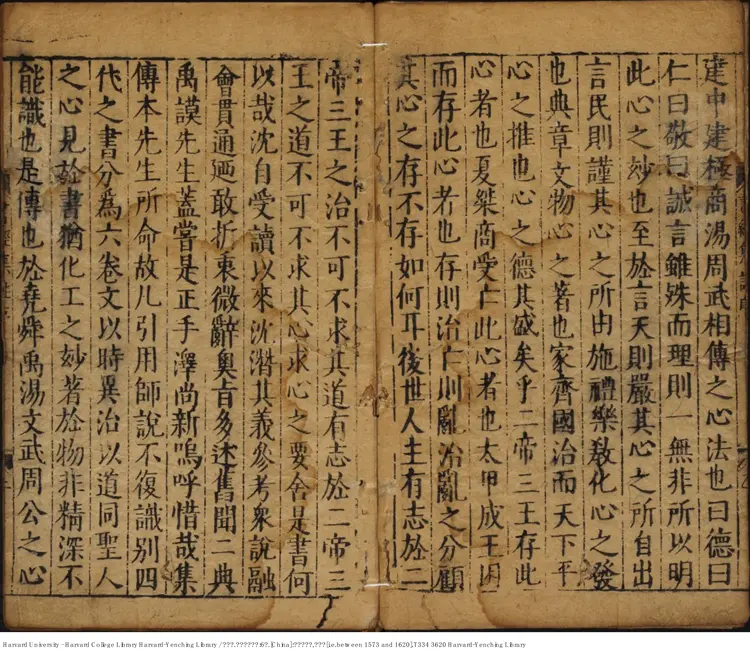 建中建極商湯周武相傳之心法也曰德曰
仁曰敬曰誠言雖殊而理則一無非所以明
此心之妙也至於言天則嚴其心之所自出
言民則謹其心之所由施禮樂敎化心之發
也典章文物心之著也家齊國治而天下平
心之推也心之德其盛矣乎二帝三王存此
心者也夏桀商受亡此心者也太甲成王困
而存此心者也存則治亡則亂治亂之分顧
其心之存不存如何耳後世人主有志於二
帝三王之治不可不求其道有志於二帝三
王之道不可不求其心求心之要舍是書何
以哉沈自受讀以來沈潛其義參考衆說融
會貫通廼敢折衷微辭奧旨多述舊聞二典
禹謨先生蓋嘗是正手澤尚新嗚呼惜哉集
傳本先生所命故凡引用師說不復識别四
代之書分爲六卷文以時異治以道同聖人
之心見於書猶化工之妙著於物非精深不
能識也是傳也於堯舜禹湯文武周公之心
Harvard University - Harvard College Library Harvard-Yenching Library / ???.??????:6?. [China]:?????,???[i.e.between 1573 and 1620],T334 3620 Harvard-Yenching Library